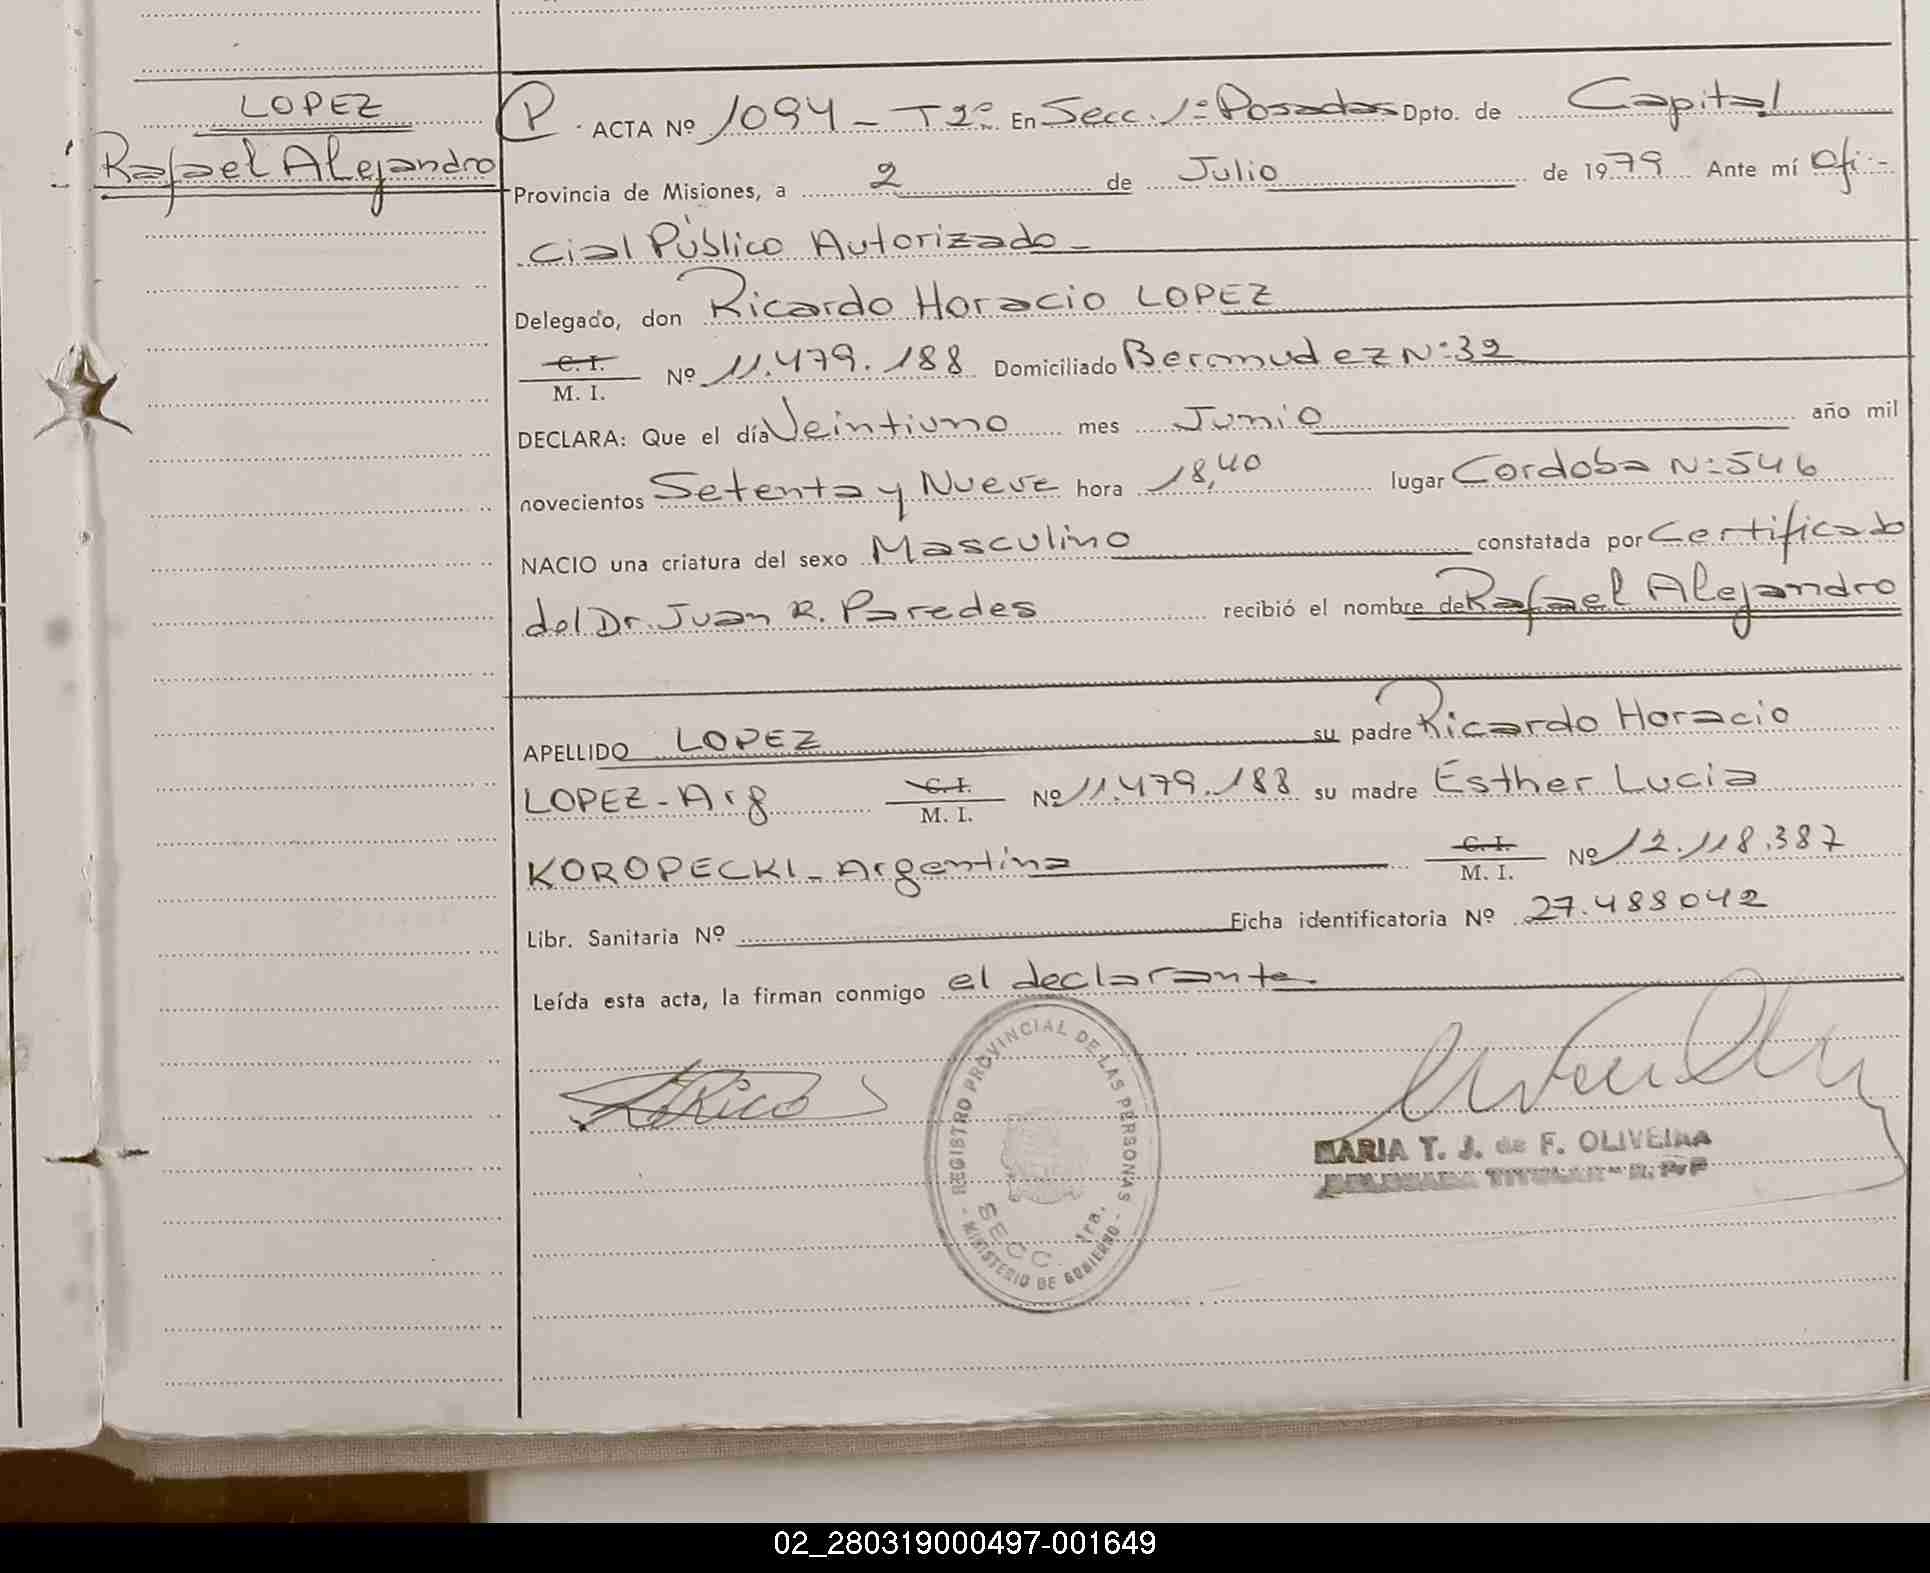 LOPEZ
Rafael Alejandro
P. ACTA Nº 1094 - T 2º En Secc. 1º Posadas Dpto. de Capital
Provincia de Misiones, a 2 de Julio de 1979 Ante mí Ofi-
cial Público Autorizado -
Delegado, don Ricardo Horacio LOPEZ
C. I.
M. I. Nº 11.479.188 Domiciliado Bermudez Nº 32
DECLARA: Que el día Veintiuno mes Junio año mil
novecientos Setenta y Nueve hora 18,40 lugar Cordoba Nº 546
NACIO una criatura del sexo Masculino constatada por Certificado
del Dr. Juan R. Paredes recibió el nombre de Rafael Alejandro
APELLIDO LOPEZ su padre Ricardo Horacio
LOPEZ - Arg C. I. M. I. Nº 11.479.188 su madre Esther Lucia
KOROPECKI - Argentina C. I. M. I. Nº 12.118.387
Libr. Sanitaria Nº Ficha identificatoria Nº 27.488042
Leída esta acta, la firman conmigo el declarante
REGISTRO PROVINCIAL DE LAS PERSONAS
- MINISTERIO DE GOBIERNO -
SECC. 1ra.
MARIA T. J. de F. OLIVEIRA
DELEGADA TITULAR
02_280319000497-001649